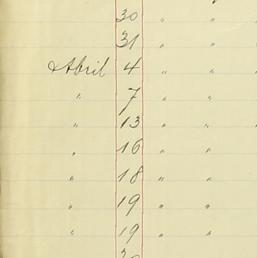 30 " "
31 " "
Abril 4 " "
" 7 " "
" 13 " "
" 16 " "
" 18 " "
" 19 " "
" 19 " "